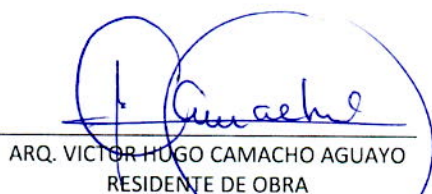 Camacho
ARQ. VICTOR HUGO CAMACHO AGUAYO
RESIDENTE DE OBRA